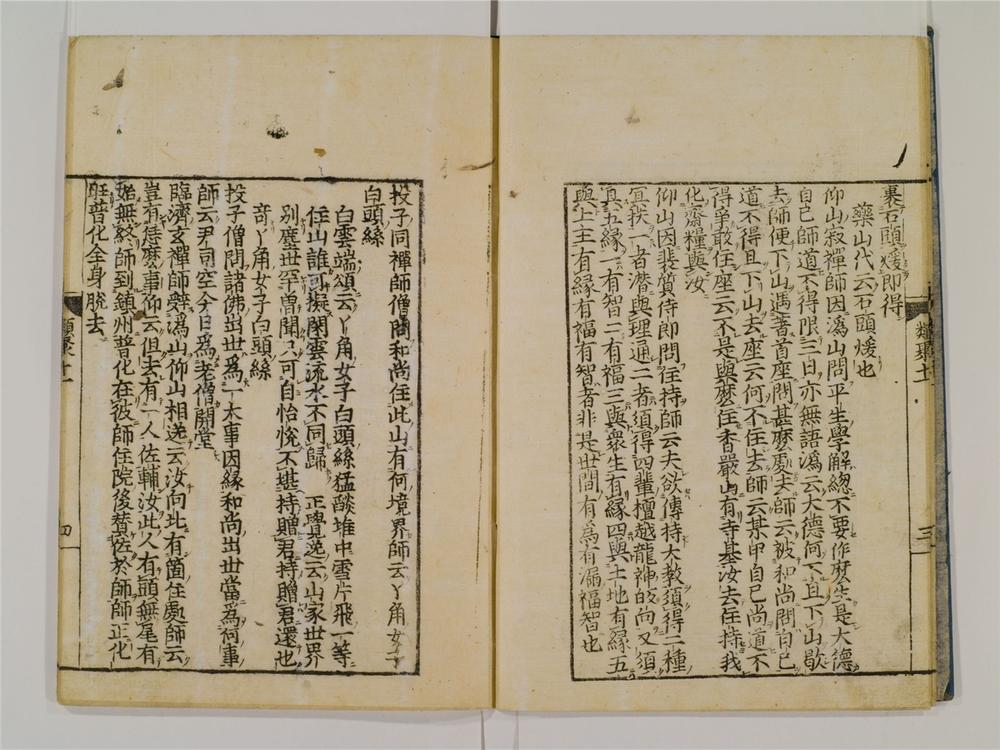 裹石頭煖即得
藥山代云石頭煖也
仰山寂禪師因潙山問平生學解總不要作麽生是大德
自己師道不得限三日亦無語潙云大德何不且下山歇
去師便下山遇著首座問甚麽處去師云被和尚問自己
道不得且下山去座云何不住去師云某甲自己尚道不
得爭敢住座云不是與麽住香嚴山有寺基汝去住持我
化齋糧與汝
仰山因裴質侍郎問住持師云夫欲傳持大教須得二種
冥扶一者潜與理通二者須得四輩檀越龍神故向又須
具五緣一有智二有福三與衆生有緣四與土地有緣五
與上主有緣有福有智者非是世間有爲有漏福智也
類聚十一
三
投子同禪師僧問和尚住此山有何境界師云丫角女子
白頭絲
白雲端頌云丫角女子白頭絲猛燄堆中雪片飛一等
住山誰可擬閑雲流水不同歸 正覺逸云山家世界
別塵世罕曽聞只可自怡悅不堪持贈君持贈君還也
竒丫角女子白頭絲
投子僧問諸佛出世爲一大事因緣和尚出世當爲何事
師云尹司空今日爲老僧開堂
臨濟玄禪師辤潙山仰山相送云汝向北有箇住處師云
豈有恁麽事仰云但去有一人佐輔汝此人有頭無尾有
始無終師到鎮州普化在彼師住院後賛佐於師師正化
旺普化全身脫去
類聚十一
四